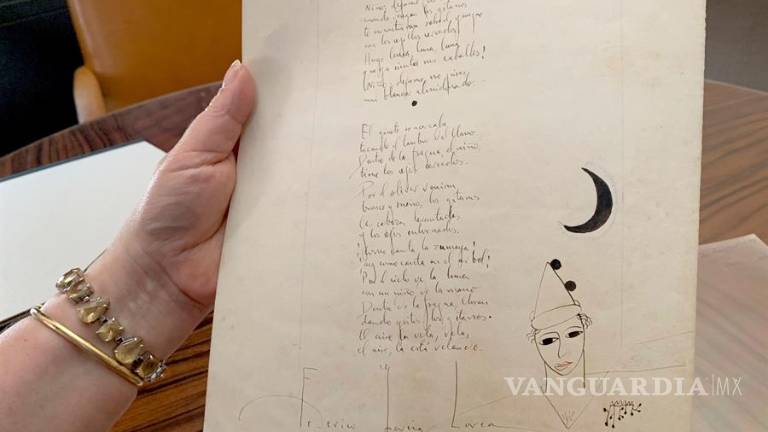 Niño, déjame
cuando vengan los gitanos
te encontraran sobre el yunque
con los ojillos cerrados.
Huye luna, luna, luna
que ya siento sus caballos!
Niño, déjame, no pises
mi blancor almidonado.
El jinete se acercaba
tocando el tambor del llano.
Dentro de la fragua, el niño,
tiene los ojos cerrados.
Por el olivar venian,
bronce y sueño, los gitanos
las cabezas levantadas
y los ojos entornados.
¡Como canta la zumaya!
¡ay como canta en el arbol!
Por el cielo va la luna
con un niño de la mano
Dentro de la fragua, lloran
dando gritos, los gitanos.
El aire la vela, vela,
el aire, la está velando.
Federico García Lorca
VANGUARDIA|MX